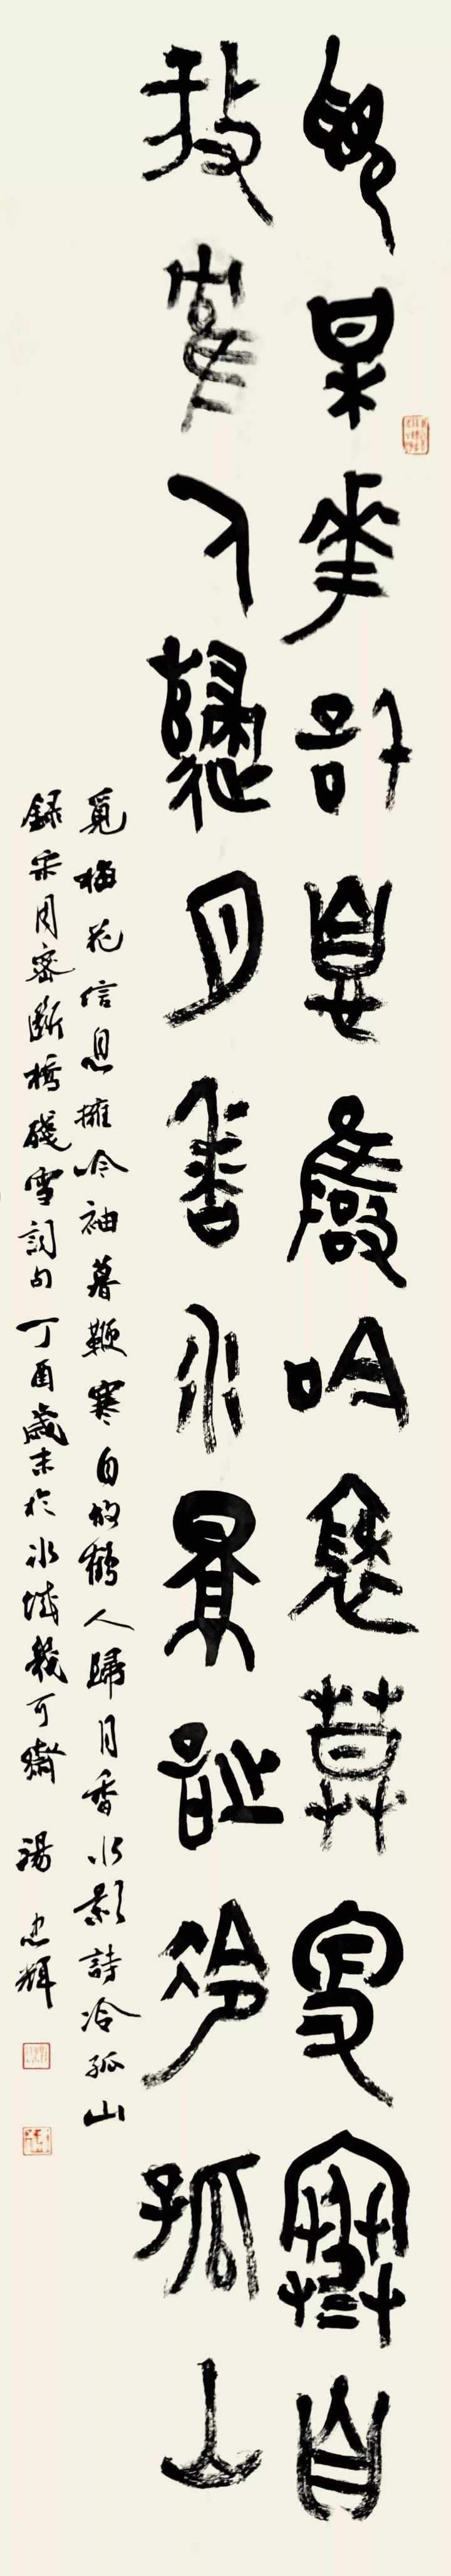 覓某華信息擁吟袖暮鞭寒自
放鶴人歸月香水影詩冷孤山
覓梅花信息擁吟袖暮鞭寒自放鶴人歸月香水影詩冷孤山
錄宋周密斷橋殘雪詞句丁酉歲末於冰城可齋 湯忠輝